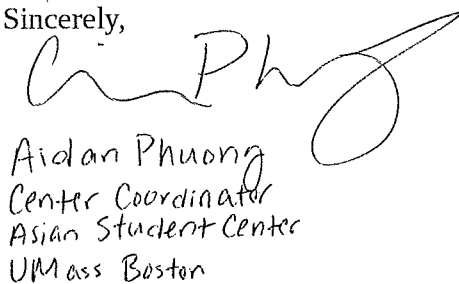 Sincerely,
Aidan Phuong
Center Coordinator
Asian Student Center
UMass Boston